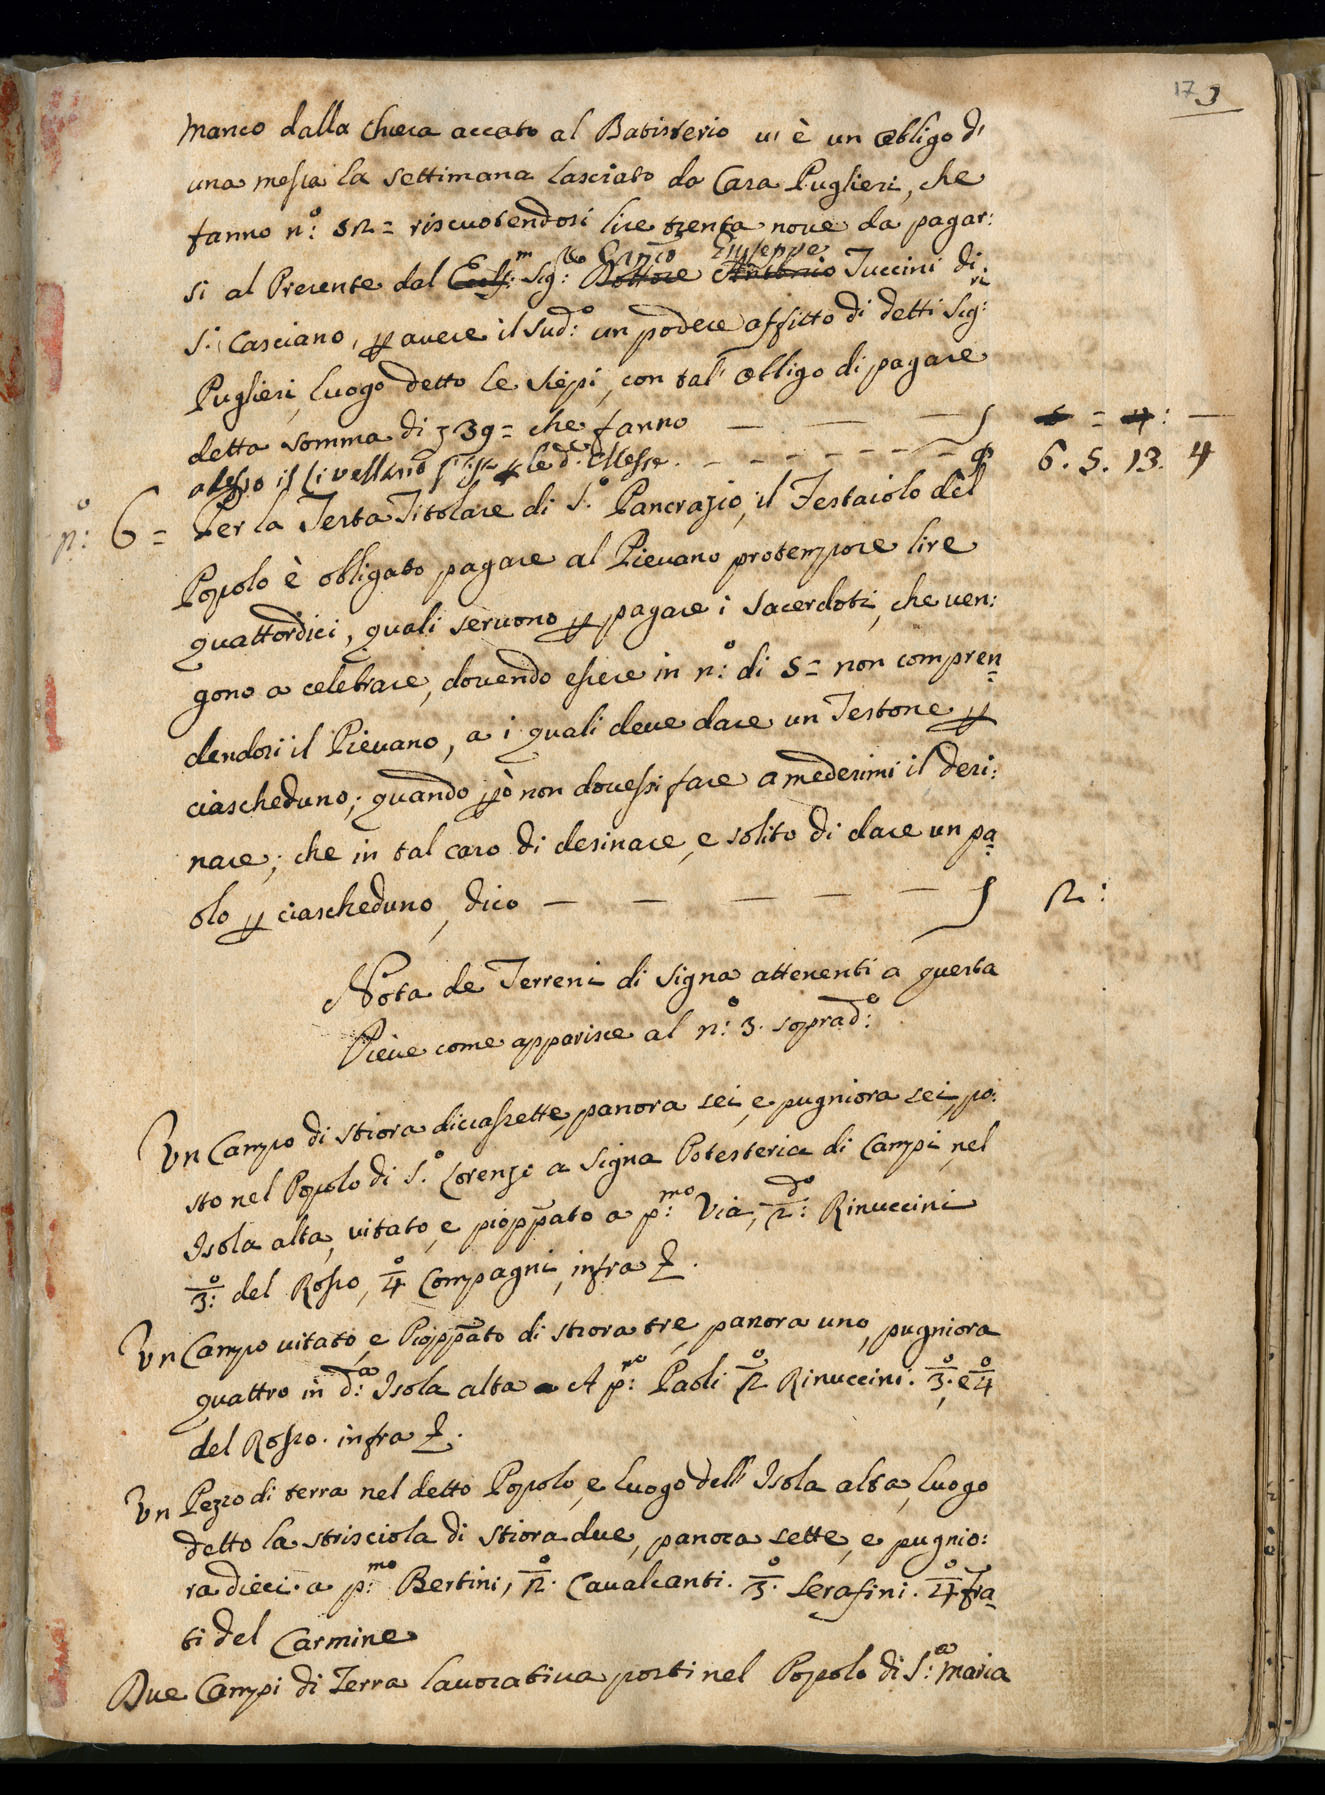 17 3
manco dalla chiesa accato al Batisterio ui è un obligo di
una messa la settimana lasciato da Casa Puglieri, che
fanno n:o 52 = riscuotendosi lire trenta noue da pagar:
si al Presente dal Sig:re Giuseppe Tuccini di
S. Casciano, p auere il sud:o un podere affitto di detti Sig:ri
Puglieri, luogo detto le siepi, con tal' obligo di pagare
detta somma di ʒ 39 = che fanno — — — ∫ 6 = 4: —
adesso il Livellario le d:e Messe. - - - - - - - 6. 5. 13. 4
n:o 6 = Per la Festa Titolare di S:o Pancrazio, il Festaiolo del
Popolo è obligato pagare al Pieuano protempore lire
quattordici, quali seruono p pagare i sacerdoti, che uen:
gono a celebrare, douendo essere in n:o di 5 = non compren=
dendosi il Pieuano, a i quali deue dare un Testone p
ciascheduno; quando pò non douessi fare a medesimi il desi:
nare; che in tal caso di desinare, e solito di dare un pa=
olo p ciascheduno, dico — — — — — ∫ 2:
Nota de Terreni di Signa attenenti a questa
Pieue come apparisce al n:o 3. soprad:o
Vn Campo di stiora diciassette, panora sei, e pugniora sei, po:
sto nel Popolo di S.o Lorenzo a Signa Potesteria di Campi, nel
Isola alta, vitato, e pioppato a p:mo Via, 2:do Rinuccini
3:o del Rosso, 4o Compagni, infra
Vn Campo uitato, e Pioppato di stiora tre, panora uno, pugniora
quattro in d:a Isola alta A p:mo Paoli 2o Rinuccini. 3:o e 4o
del Rosso. infra
Vn Pezzo di terra nel detto Popolo, e luogo dell' Isola alta, luogo
detto la strisciola di stiora due, panora sette, e pugnio:
ra dieci. a p:mo Bertini, 2o. Caualcanti. 3o. Serafini. 4o Fra=
ti del Carmine
Due Campi di Terra lauoratiua posti nel Popolo di S:a Maria